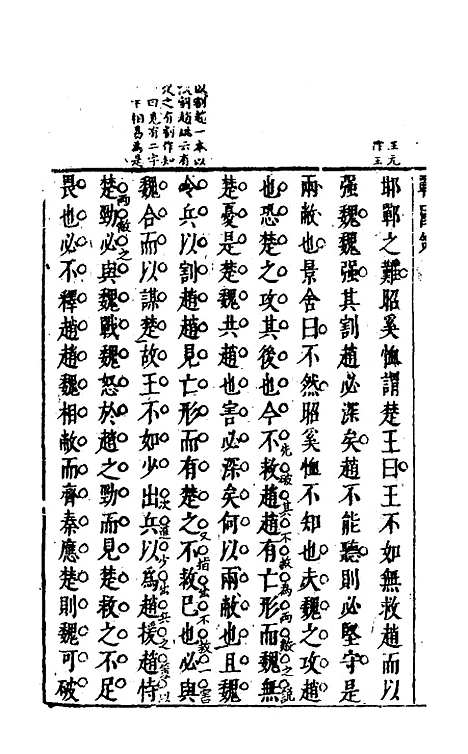 戰國策
邯鄲之難昭奚恤謂楚王曰王不如無救趙而以
强魏魏强其割趙必深矣趙不能聽則必堅守是
兩敝也景舍曰不然昭奚恤不知也夫魏之攻趙
也恐楚之攻其後也今不救趙趙有亡形而魏無
先破其不救為兩敵之說
楚憂是楚魏共趙也害必深矣何以兩敝也且魏
令兵以割趙趙見亡形而有楚之不救已也必與
又指出不救一害
魏合而以謀楚故王不如少出兵以為趙援趙恃
次進少出兵之策以
楚勁必與魏戰魏怒於趙之勁而見楚救之不足
兩敵之
畏也必不釋趙趙魏相敝而齊秦應楚則魏可破
以割趙一本以
作知
二字